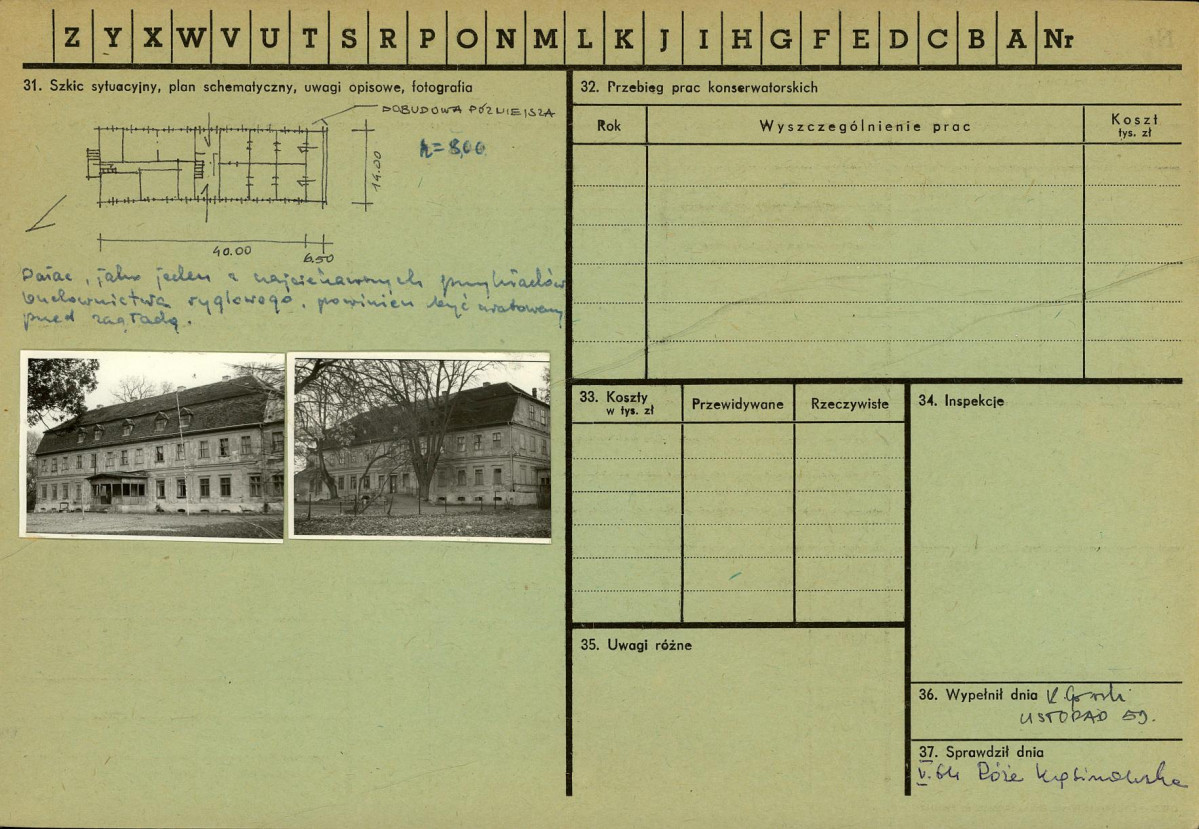 Z Y X W V U T S R P O N M L K J I H G F E D C B A Nr
31. Szkic sytuacyjny, plan schematyczny, uwagi opisowe, fotografia
DOBUDOWA PÓŹNIEJSZA
h = 8,00
14.00
40.00
6.50
Pałac, jako jeden z najciekawszych przykładów
budownictwa ryglowego, powinien być uratowany
przed zagładą.
32. Przebieg prac konserwatorskich
Rok
Wyszczególnienie prac
Koszt
tys. zł
33. Koszty
w tys. zł
Przewidywane
Rzeczywiste
34. Inspekcje
35. Uwagi różne
36. Wypełnił dnia K.
LISTOPAD 59.
37. Sprawdził dnia
V.64 Róża Kąsinowska